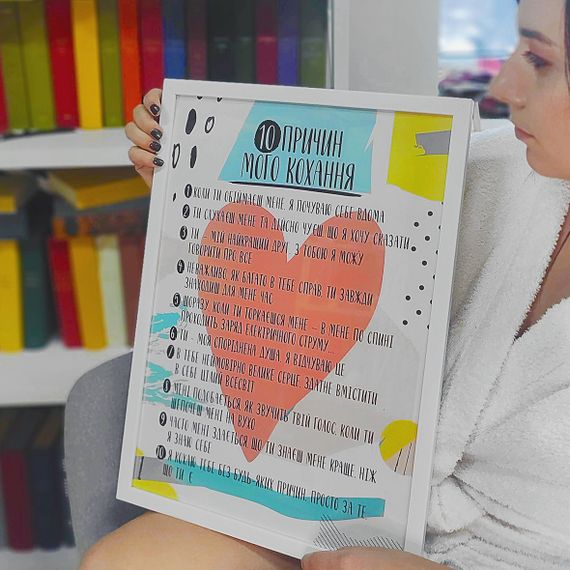 10 ПРИЧИН
МОГО КОХАННЯ
1 КОЛИ ТИ ОБІЙМАЄШ МЕНЕ, Я ПОЧУВАЮ СЕБЕ ВДОМА
2 ТИ СЛУХАЄШ МЕНЕ ТА ДІЙСНО ЧУЄШ, ЩО Я ХОЧУ СКАЗАТИ
3 ТИ - МІЙ НАЙКРАЩИЙ ДРУГ, З ТОБОЮ Я МОЖУ
ГОВОРИТИ ПРО ВСЕ
4 НЕВАЖЛИВО, ЯК БАГАТО В ТЕБЕ СПРАВ, ТИ ЗАВЖДИ
ЗНАХОДИШ ДЛЯ МЕНЕ ЧАС
5 ЩОРАЗУ, КОЛИ ТИ ТОРКАЄШСЯ МЕНЕ - В МЕНЕ ПО СПИНІ
ПРОХОДИТЬ ЗАРЯД ЕЛЕКТРИЧНОГО СТРУМУ...
6 ТИ - МОЯ СПОРІДНЕНА ДУША, Я ВІДЧУВАЮ ЦЕ
7 В ТЕБЕ НЕЙМОВІРНО ВЕЛИКЕ СЕРЦЕ, ЗДАТНЕ ВМІСТИТИ
В СЕБЕ ЦІЛИЙ ВСЕСВІТ
8 МЕНІ ПОДОБАЄТЬСЯ ЯК ЗВУЧИТЬ ТВІЙ ГОЛОС, КОЛИ ТИ
ШЕПОЧЕШ МЕНІ НА ВУХО
9 ЧАСТО МЕНІ ЗДАЄТЬСЯ, ЩО ТИ ЗНАЄШ МЕНЕ КРАЩЕ, НІЖ
Я ЗНАЮ СЕБЕ
10 Я КОХАЮ ТЕБЕ БЕЗ БУДЬ-ЯКИХ ПРИЧИН, ПРОСТО ЗА ТЕ,
ЩО ТИ Є